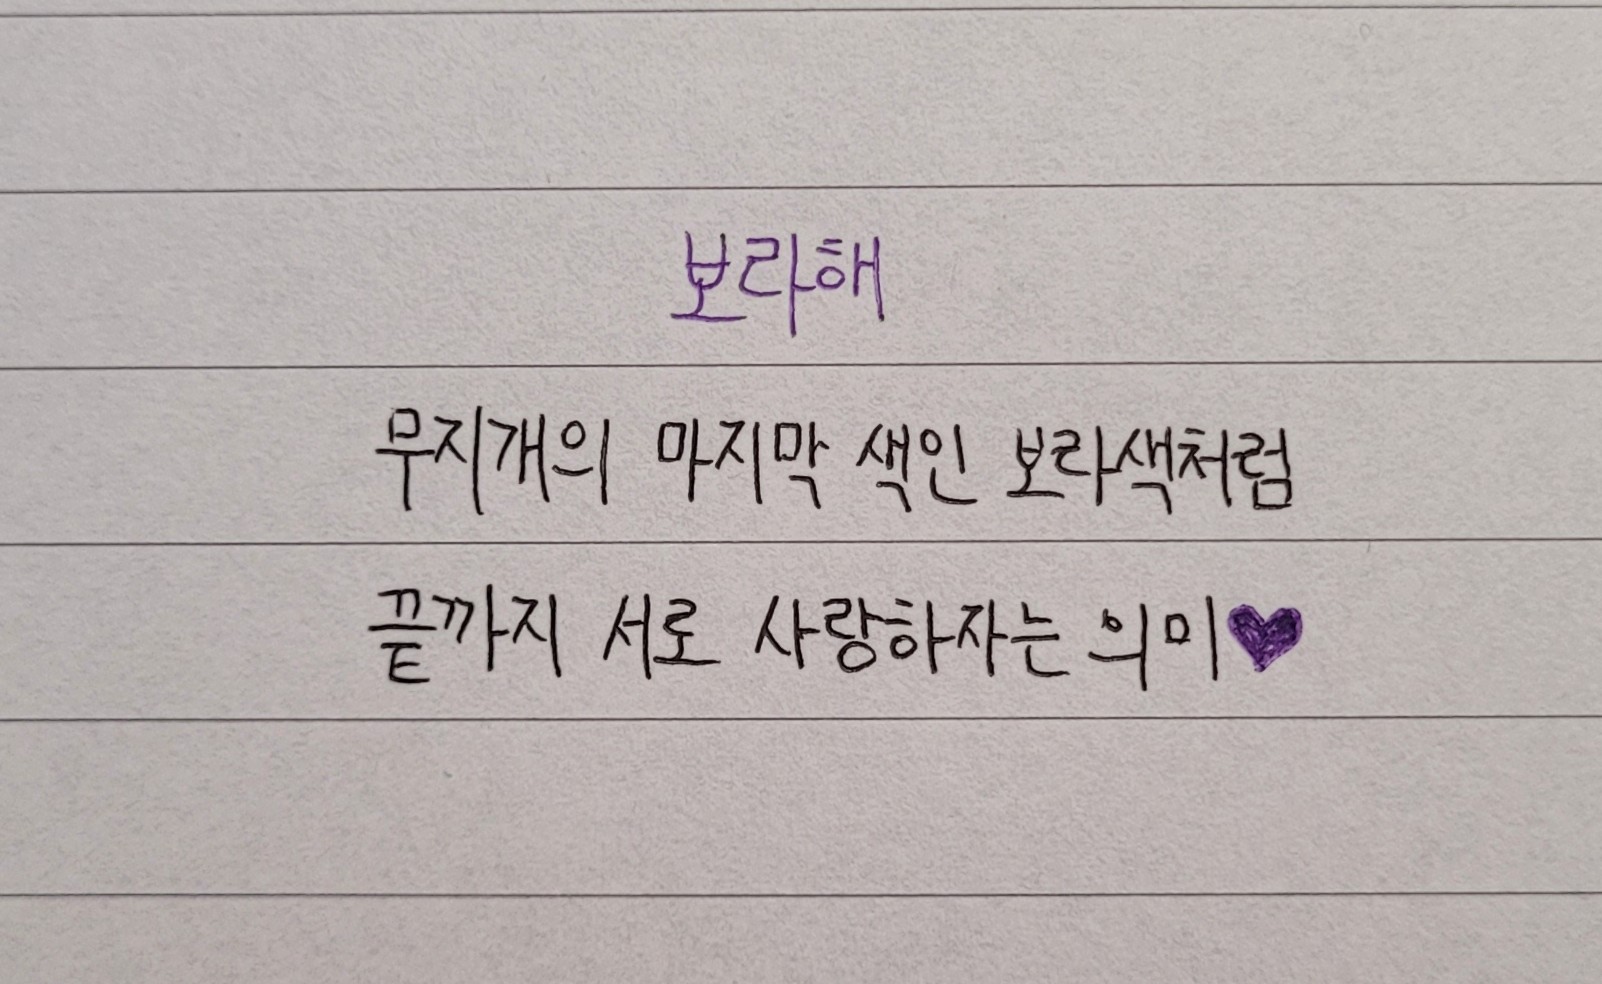 보라해
무지개의 마지막 색인 보라색처럼
끝까지 서로 사랑하자는 의미💜